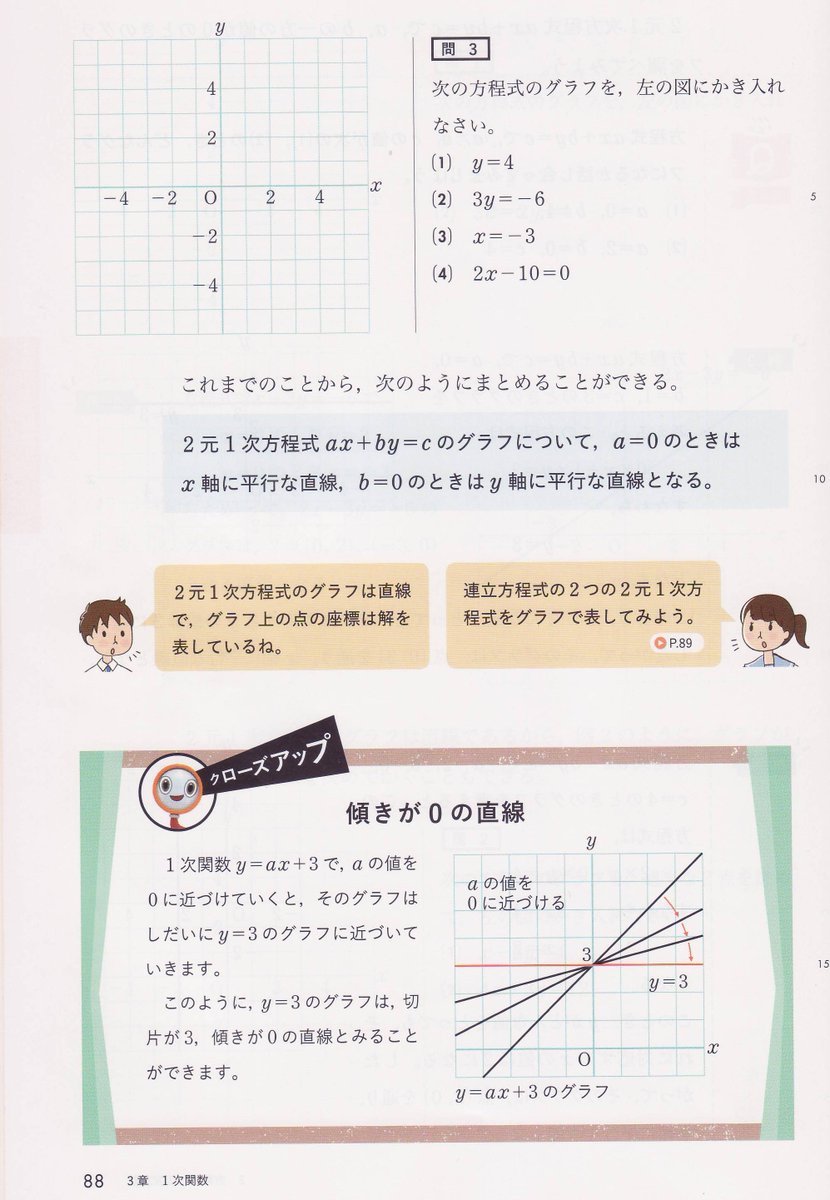 y
4
2
-4 -2 O 2 4 x
-2
-4
問 3
次の方程式のグラフを，左の図にかき入れ
なさい。
(1) y=4
(2) 3y=-6
(3) x=-3
(4) 2x-10=0
5
これまでのことから，次のようにまとめることができる。
2元1次方程式 ax+by=c のグラフについて，a=0 のときは
x 軸に平行な直線，b=0 のときは y 軸に平行な直線となる。
10
2元1次方程式のグラフは直線
で，グラフ上の点の座標は解を
表しているね。
連立方程式の2つの2元1次方
程式をグラフで表してみよう。
P.89
クローズアップ
傾きが0の直線
1次関数 y=ax+3 で，a の値を
0に近づけていくと，そのグラフは
しだいに y=3 のグラフに近づいて
いきます。
このように，y=3 のグラフは，切
片が3，傾きが0の直線とみること
ができます。
y
a の値を
0に近づける
3
y=3
O
x
y=ax+3 のグラフ
15
88 3章 1次関数